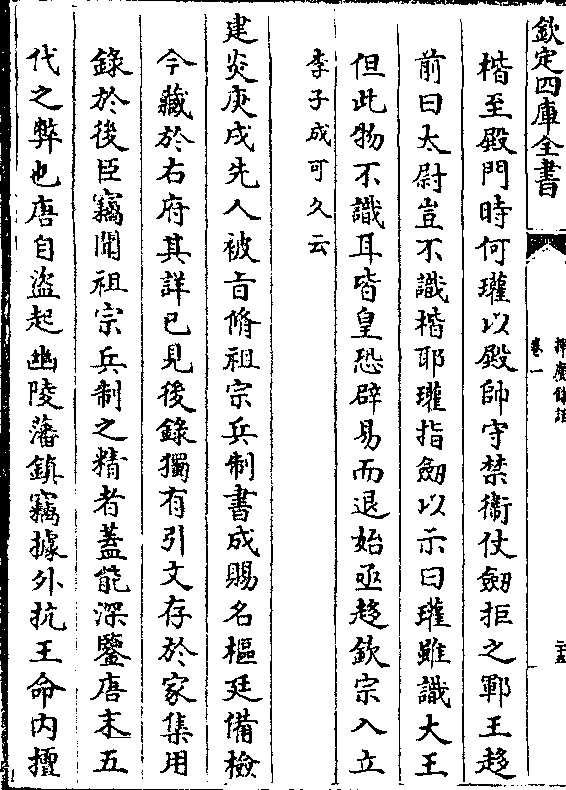 欽定四庫全書
卷一
楷至殿門時何瓘以殿帥守禁衞仗劒拒之鄆王趍
前曰太尉豈不識楷耶瓘指劒以示曰瓘雖識大王
但此物不識耳皆皇恐辟易而退始亟趍欽宗入立
李子成可久云
建炎庚戌先人被㫖脩祖宗兵制書成賜名樞廷備檢
今藏於右府其詳已見後錄獨有引文存於家集用
錄於後臣竊聞祖宗兵制之精者葢能深鑒唐末五
代之弊也唐自盜起幽陵藩鎮竊據外抗王命内擅